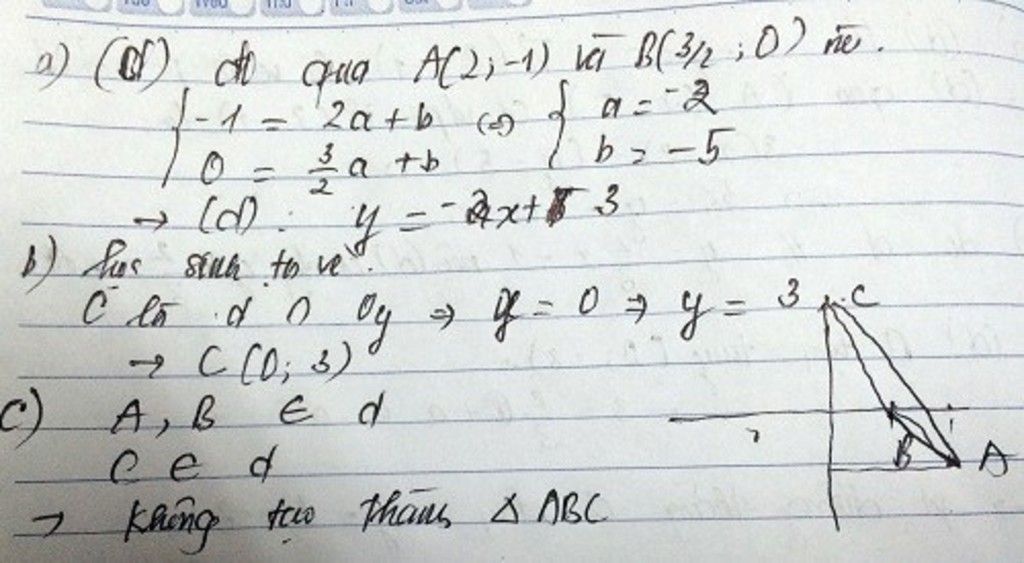 a) (d) đi qua A(2;-1) và B(3/2;0) nê.
{ -1 = 2a + b (=) { a = -2
0 = 3/2 a + b b = -5
→ (d): y = -2x + 3
b) học sinh tự vẽ.
C là d ∩ Oy ⇒ x = 0 ⇒ y = 3
→ C(0; 3)
c) A, B ∈ d
C ∈ d
→ Không tạo thành Δ ABC
C
B
A